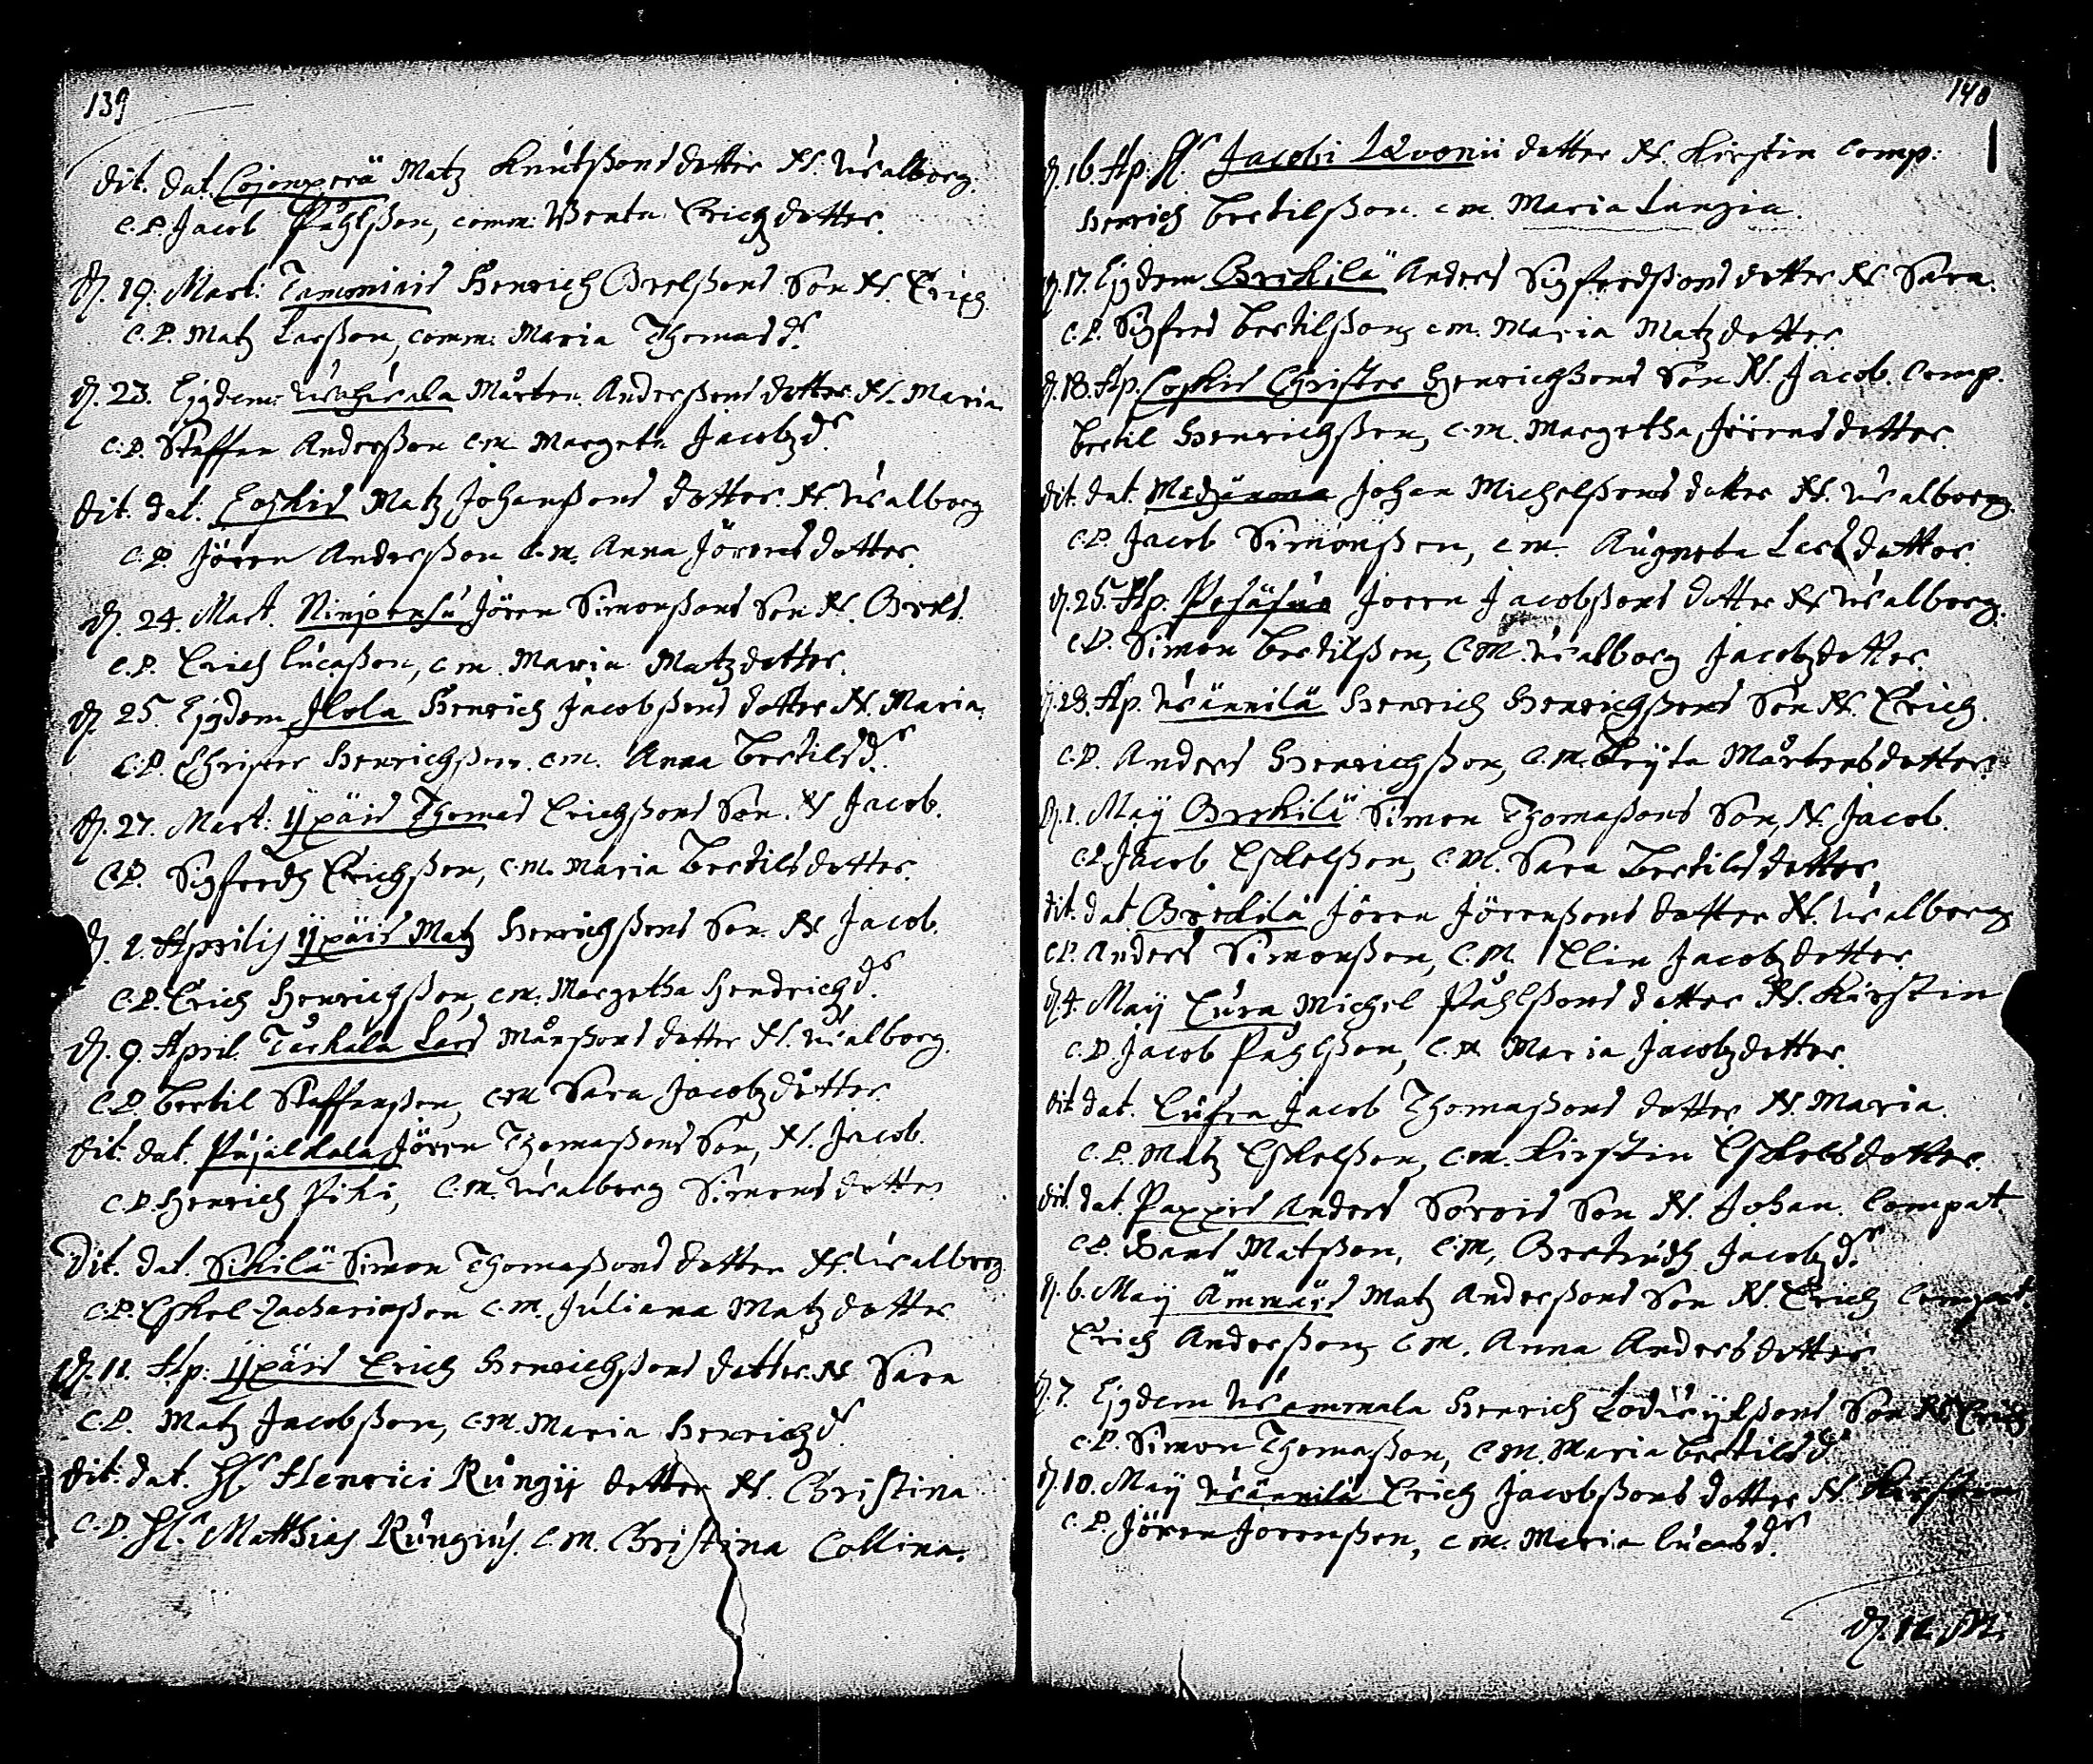 139
dit. dat. Cojonperä Matz Knutßons dotter N. Walborg.
C.P. Jacob Påhlßon, comm: Beata Erichz dotter.
D. 19. Mart: Tamoniais Henrich Grelßons Son N. Erich.
C.P. Matz Larßon, comm: Maria Thomas dr.
D. 23. Ejgdem Mårten Anderßons dotter N. Maria.
C.P. Staffan Anderßon C.M. Margeta Jacobz dr.
dit. dat. Eoskis Matz Johanßons dotter. N. Walborg
C.P. Jören Anderßon C.M. Anna Jörens dotter.
D. 24. Mart. Ninpensu Jören Simonßons Son N. Grels.
C.P. Erich Lucaßon, C.M. Maria Matz dotter.
D. 25. Ejgdem Ilola Henrich Jacobßons dotter N. Maria.
C.P. Christer Henrichßon. C.M. Anna Bertils dr.
D. 27. Mart: Ypäis Thomas Erichßons Son. N. Jacob.
C.P. Sigfredh Erichßon, C.M. Maria Bertils dotter.
D. 2. Aprilis Ypäis Matz Henrichßons Son. N. Jacob.
C.P. Erich Henrichßon, C.M. Margetha Hendrichz dr.
D. 9. April. Tarkala Lars Månßons dotter N. Walborg.
C.P. Bertil Staffanßon, C.M. Sara Jacobz dotter.
dit. dat. Pujalkala Jören Thomaßons Son, N. Jacob.
C.P. Henrich Piki, C.M. Walborg Simons dotter
Dit. dat. Sikilä Simon Thomaßons dotter N. Walborg.
C.P. Eskel Zachariaßon C.M. Juliana Matz dotter
D. 11. Ap: Ypäis Erich Henrichßons dotter N. Sara
C.P. Matz Jacobßon, C.M. Maria Henrichz dr.
dit. dat. Hr Henrici Rungij dotter N. Christina
C.P. Hr Matthias Rungius. C.M. Christina Collina.
140
D. 16. Ap: Hr. Jacobi Lavonii dotter N. Kirstin Comp:
Henrich Bertilßon. C.M. Maria Langia.
D. 17. Ejgdem Brekilä Anders Sigfredßons dotter N. Sara.
C.P. Sigfred Bertilßon, C.M. Maria Matz dotter.
D. 18. Ap. Coskis Christer Henrichßons Son N. Jacob. Comp.
Bertil Henrichßon, C.M. Margetha Jörens dotter.
dit. dat. Johan Michelßons dotter N. Walborg.
C.P. Jacob Simonßon, C.M. Augneta Lars dotter.
D. 25. Ap. Jören Jacobßons dotter N. Walborg.
C.P. Simon Bertilßon, C.M. Walborg Jacobz dotter.
D. 28. Ap. Wännilä Henrich Henrichßons Son N. Erich.
C.P. Anders Henrichßon, C.M. Bryta Mårtens dotter.
D. 1. Maij Brekilä Simon Thomaßons Son, N. Jacob.
C.P. Jacob Eskelßon, C.M. Sara Bertils dotter.
dit. dat. Brekilä Jören Jörenßons dotter N. Walborg
C.P. Anders Simonßon, C.M. Elin Jacobz dotter.
D. 4. Maij Eura Michel Påhlßons dotter N. Kirstin
C.P. Jacob Påhlßon, C.M. Maria Jacobz dotter.
dit. dat. Jacob Thomaßons dotter N. Maria.
C.P. Matz Eskelßon, C.M. Kirstin Eskels dotter.
dit. dat. Pappis Anders Sorois Son N. Johan. Compat.
C.P. Hans Matßon, C.M. Gertrudh Jacobz dr.
D. 6. Maij Ämmäis Matz Anderßons Son N. Erich Compat.
Erich Anderßon, C.M. Anna Anders dotter.
D. 7. Ejgdem Wammala Henrich Lodwijkßons Son N. Erich
C.P. Simon Thomaßon, C.M. Maria Bertils dr.
D. 10. Maij Wännilä Erich Jacobßons dotter N. Kirstin
C.P. Jören Jörenßon, C.M. Maria Lucas dr.
D. 12. M.